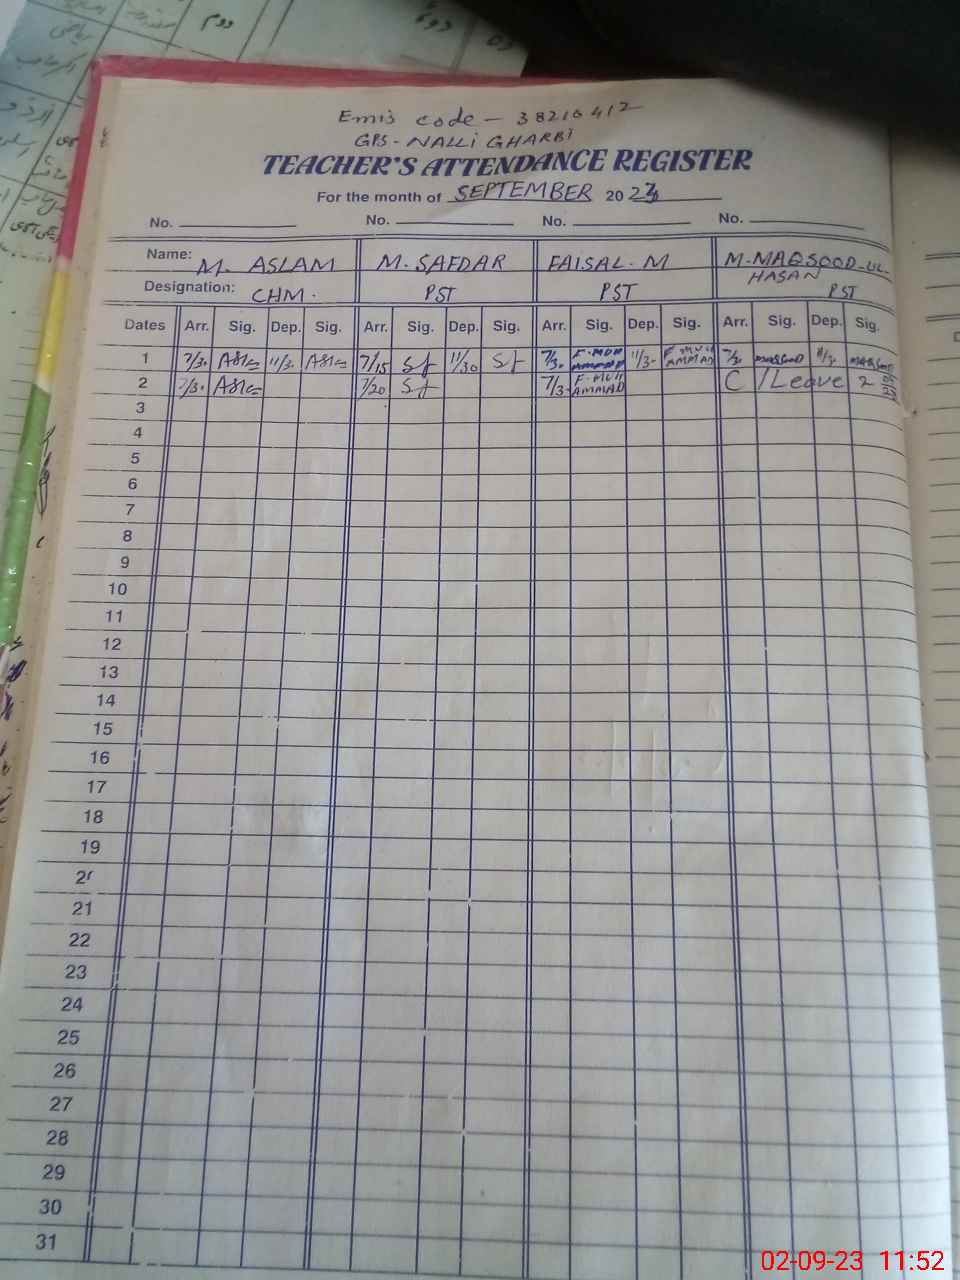 دوم
Emis code - 38210412
GPS - NALLI GHARBI
TEACHER'S ATTENDANCE REGISTER
For the month of SEPTEMBER 2023
No. No. No. No.
Name: M. ASLAM M. SAFDAR FAISAL. M M. MAQSOOD-UL-
HASAN
Designation: CHM. PST PST PST
Dates Arr. Sig. Dep. Sig. Arr. Sig. Dep. Sig. Arr. Sig. Dep. Sig. Arr. Sig. Dep. Sig.
1 7/3. 11/3. 7/15 Sf 11/30 Sf 7/3. F-MUH AMMAD 11/3- F-MUH AMMAD 7/3. MAQSOOD 11/3. MAQSOOD
2 7/3. 7/20 Sf 7/3- F-MUH AMMAD C/Leave 2
3
4
5
6
7
8
9
10
11
12
13
14
15
16
17
18
19
20
21
22
23
24
25
26
27
28
29
30
31
02-09-23 11:52